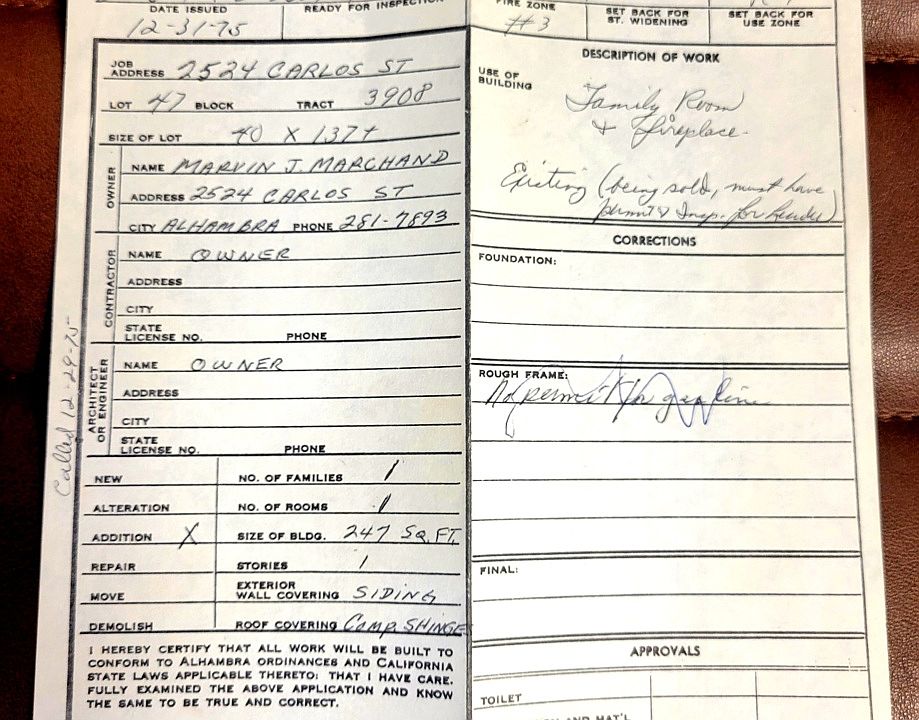 DATE ISSUED
READY FOR INSPECTION
12-31-75
FIRE ZONE
#3
SET BACK FOR
ST. WIDENING
SET BACK FOR
USE ZONE
JOB
ADDRESS 2524 CARLOS ST
LOT 47 BLOCK TRACT 3908
SIZE OF LOT 40 X 137+
OWNER
NAME MARVIN J. MARCHAND
ADDRESS 2524 CARLOS ST
CITY ALHAMBRA PHONE 281-7893
CONTRACTOR
NAME OWNER
ADDRESS
CITY
STATE
LICENSE NO. PHONE
ARCHITECT
OR ENGINEER
NAME OWNER
ADDRESS
CITY
STATE
LICENSE NO. PHONE
Called 12-29-75
NEW NO. OF FAMILIES 1
ALTERATION NO. OF ROOMS 1
ADDITION X SIZE OF BLDG. 247 SQ. FT.
REPAIR STORIES 1
MOVE EXTERIOR
WALL COVERING SIDING
DEMOLISH ROOF COVERING COMP. SHINGES
I HEREBY CERTIFY THAT ALL WORK WILL BE BUILT TO
CONFORM TO ALHAMBRA ORDINANCES AND CALIFORNIA
STATE LAWS APPLICABLE THERETO: THAT I HAVE CARE.
FULLY EXAMINED THE ABOVE APPLICATION AND KNOW
THE SAME TO BE TRUE AND CORRECT.
DESCRIPTION OF WORK
USE OF
BUILDING
Family Room
& Fireplace
Existing (being sold, must have
permit & Insp. for
CORRECTIONS
FOUNDATION:
ROUGH FRAME:
No permit for gas line
FINAL:
APPROVALS
TOILET
AND MAT'L